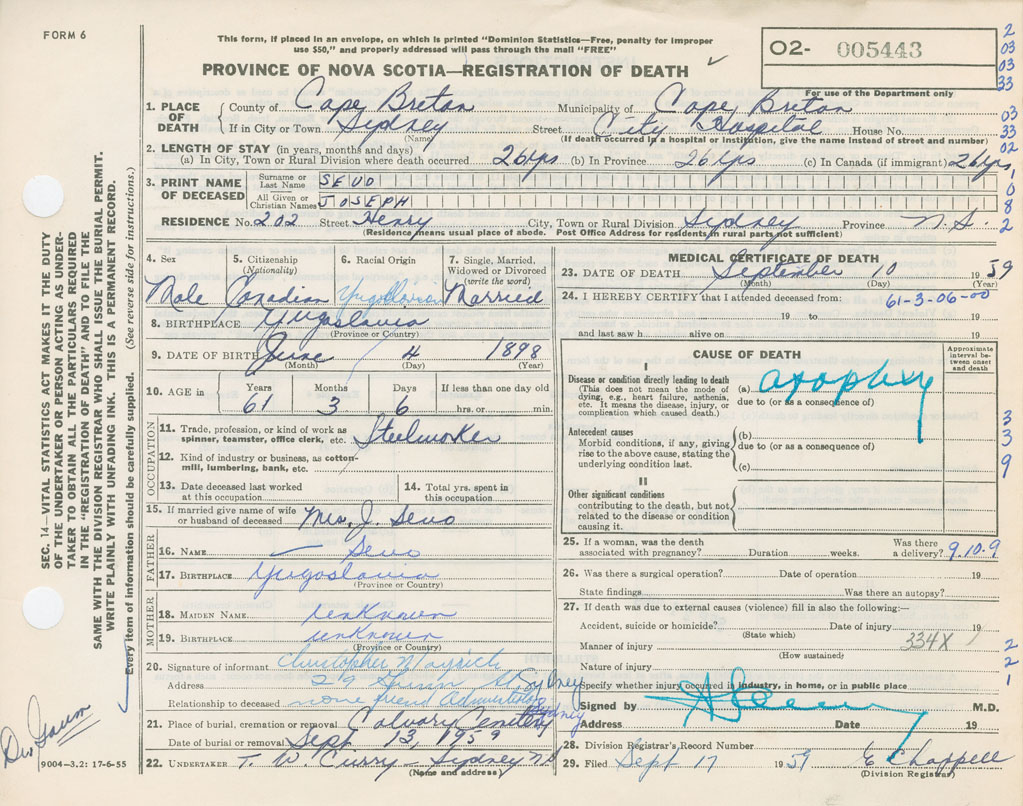 FORM 6
This form, if placed in an envelope, on which is printed "Dominion Statistics—Free, penalty for improper
use $50," and properly addressed will pass through the mail "FREE"
PROVINCE OF NOVA SCOTIA—REGISTRATION OF DEATH
O2- 005443
For use of the Department only
2
03
03
33
03
33
02
1
0
8
2
1. PLACE OF DEATH
County of Cape Breton Municipality of Cape Breton
If in City or Town Sydney Street City Hospital House No.
(Name) (If death occurred in a hospital or institution, give the name instead of street and number)
2. LENGTH OF STAY (in years, months and days)
(a) In City, Town or Rural Division where death occurred 26 yrs (b) In Province 26 yrs (c) In Canada (if immigrant) 26 yrs
3. PRINT NAME OF DECEASED
Surname or Last Name SEVO
All Given or Christian Names JOSEPH
RESIDENCE No. 202 Street Henry City, Town or Rural Division Sydney Province N.S.
(Residence means usual place of abode. Post Office Address for residents in rural parts not sufficient)
4. Sex 5. Citizenship (Nationality) 6. Racial Origin 7. Single, Married, Widowed or Divorced (write the word)
Male Canadian Yugoslavian Married
8. BIRTHPLACE Yugoslavia
(Province or Country)
9. DATE OF BIRTH June 4 1898
(Month) (Day) (Year)
10. AGE in Years Months Days If less than one day old
61 3 6 hrs. or min.
OCCUPATION
11. Trade, profession, or kind of work as
spinner, teamster, office clerk, etc. Steelworker
12. Kind of industry or business, as cotton-
mill, lumbering, bank, etc.
13. Date deceased last worked
at this occupation
14. Total yrs. spent in
this occupation
15. If married give name of wife
or husband of deceased Mrs. J. Sevo
FATHER
16. NAME — Sevo
17. BIRTHPLACE Yugoslavia
(Province or Country)
MOTHER
18. MAIDEN NAME unknown
19. BIRTHPLACE unknown
(Province or Country)
20. Signature of informant Christopher
Address 29 St. Sydney
Relationship to deceased none friend
21. Place of burial, cremation or removal Calvary Cemetery Sydney
Date of burial or removal Sept 13, 1959
22. UNDERTAKER T. W. Curry - Sydney NS
(Name and address)
MEDICAL CERTIFICATE OF DEATH
23. DATE OF DEATH September 10 1959
(Month) (Day) (Year)
24. I HEREBY CERTIFY that I attended deceased from:
61-3-06-00
19 to 19
and last saw h alive on 19
CAUSE OF DEATH
Approximate interval between onset and death
I
Disease or condition directly leading to death
(This does not mean the mode of
dying, e.g., heart failure, asthenia,
etc. It means the disease, injury, or
complication which caused death.)
(a) apoplexy
due to (or as a consequence of)
Antecedent causes
Morbid conditions, if any, giving
rise to the above cause, stating the
underlying condition last.
(b)
due to (or as a consequence of)
(c)
3
3
9
II
Other significant conditions
contributing to the death, but not
related to the disease or condition
causing it.
25. If a woman, was the death
associated with pregnancy? Duration weeks. Was there a delivery? 9.10.9
26. Was there a surgical operation? Date of operation 19
State findings Was there an autopsy?
27. If death was due to external causes (violence) fill in also the following:—
Accident, suicide or homicide? Date of injury 19
(State which) 334X
Manner of injury
(How sustained)
Nature of injury
2
2
1
Specify whether injury occurred in industry, in home, or in public place
Signed by M.D.
Address Date 19
28. Division Registrar's Record Number
29. Filed Sept 17 1959 E Chappell
(Division Registrar)
SEC. 14—VITAL STATISTICS ACT MAKES IT THE DUTY
OF THE UNDERTAKER OR PERSON ACTING AS UNDER-
TAKER TO OBTAIN ALL THE PARTICULARS REQUIRED
IN THE "REGISTRATION OF DEATH" AND TO FILE THE
SAME WITH THE DIVISION REGISTRAR WHO SHALL ISSUE THE BURIAL PERMIT.
WRITE PLAINLY WITH UNFADING INK. THIS IS A PERMANENT RECORD.
Every item of information should be carefully supplied. (See reverse side for instructions.)
9004-3.2: 17-6-55